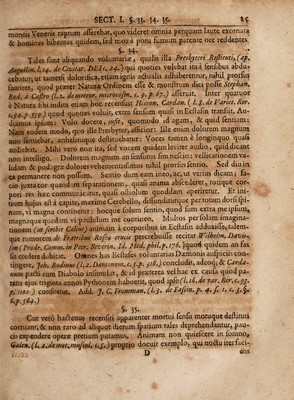 SECT. I. §. 33. 34. 35. 25
montis Veneris raptum asserebat, quo videret omnia perquam laute exornata
& homines bibentes quidem, sed mox à potu fumum patente ore reddentes.
§. 34.
Tales sunt aliquando voluntariæ, qualis illa Presbyteri Restituti, (ap.
Augustin. l. 14. de Civitat. DEI c. 24.) qui quoties volebat ita à sensibus abdu-
cebatur, ut tametsi dolorifica, etiam ignis actualia adhiberentur, nihil prorsus
sentiret, quod præter Naturæ Ordinem esse & monstrum dici posse Stephan.
Rod. à Castro (l. 2. de meteor. microcosm. c. 2. p. 67.) asserit. Inter quatuor
è Natura sibi indita etiam hoc recenset Hieron. Cardan. (l. 8. de Variet. Rer.
c. 34. p. 283.) quod quoties voluit, extra sensum quasi in Ecstasin transiit. Au-
diamus ipsum. Volo docere, inſit, quomodo id agam, & quid sentiam.
Nam eodem modo, quo ille Presbyter, afficior. Ille enim dolorem magnum
non sentiebat, anhelitusque destituebatur: Voces tamen è longinquo quasi
audiebat. Mihi vero non ita, sed vocem quidem leviter audio, quid dicant
non intelligo. Dolorem magnum an sensurus sim nescio: vellicationem va-
lidam & podagræ dolorem vehementissimos nihil prorsus sentio. Sed diu in
ea permanere non possem. Sentio dum eam ineo, ac, ut verius dicam, fa-
cio juxta cor quandam separationem, quasi anima abscederet, totique cor-
pori res hæc communicatur, quasi ostiolum quoddam aperiretur. Et ini-
tium hujus est à capite, maxime Cerebello, diffunditurque per totam dorsi spi-
nam, vi magna continetur: hocque solum sentio, quod sum extra me ipsum,
magnaque quadam vi paululum me contineo. Multos per solam imagina-
tionem (in scribit Celius) animam è corporibus in Ecstasin adduxisse, ealem-
que rumorem de Fratribus Roseæ crucis percrebuisse recitat Wilhelm. Davis-
son (Prodr. Comm. in Petr. Severin. Id. Med. phil. p. 176.) quod quidem an fas
sit credere dubitat. Omnes has Ecstases voluntarias Dæmonis auspiciis con-
tingere, Joh. Bodinus (l. 2. Dæmonom. c. 5. p. 318.) concludit, adeoq; & Carda-
num pacta cum Diabolo insimulat, & ad præterea vel hac ex causa quod pa-
trem ejus triginta annos Pythonem habuerit, quod ipso (l. 16. de var. Rer. c. 93.
p. 1102.) constitetur. Add. J. C. Fromman. (l. 3. de Fascin. p. 4. s. 1. c. 3. §.
6. p. 564.)
§. 35.
Cur vero hactenus recensiti apparenter mortui sensu motuque destituti
cormiant, & non raro ad aliquot dierum spatium tales deprehendantur, pau-
cis expendere operæ pretium putamus. Animam non quiescere in somno,
Galen. (l. 2. de mot. muscul. c. 5.) proprio docuit exemplo, qui noctu iter faci-
D ens